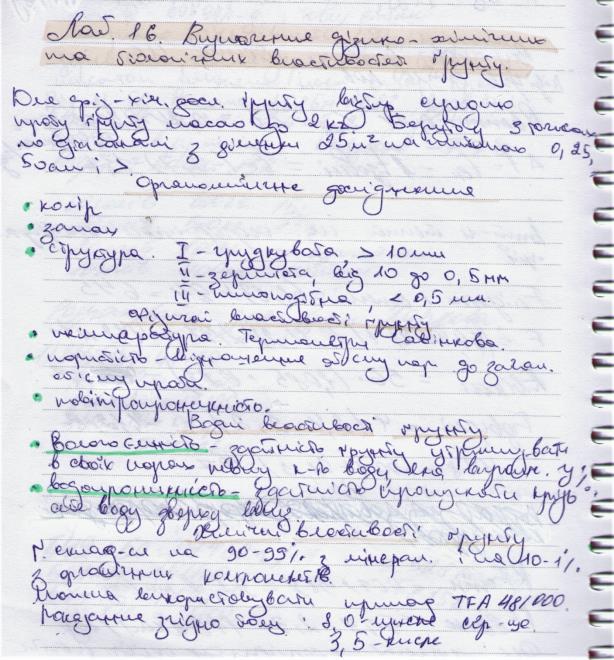 Лаб. 16. Визначення фізико-хімічних
та біологічних властивостей ґрунту.
Для фіз-хім. досл. ґрунту відбир. середню
пробу ґрунту масою до 2 кг. Беруть у 3 точках
по діагоналі з ділянки 25м² на глибині 0,25,
50см і >.
Органолептичне дослідження
• колір
• запах
• структура. I - грудкувата, > 10мм
II - зерниста, від 10 до 0,5мм
III - пилоподібна, < 0,5 мм.
Фізичні властивості ґрунту
• температура. Термометри Савінкова.
• пористість - відношення об'єму пор до загал.
об'єму проби.
• повітропроникність.
Водні властивості ґрунту.
• Вологоємність - здатність ґрунту утримувати
в своїх порах певну к-ть води, яка виражен. у %
• водопроникність - здатність пропускати крізь
себе воду зверху вниз
Хімічні властивості ґрунту
Ґ. склад-ся на 90-99% з мінерал. і на 10-1%
з органічних компонентів.
Можна використовувати прилад TFA 48/000.
Показання згідно того: 8,0 - лужне сер-ще.
3,5 - кисле